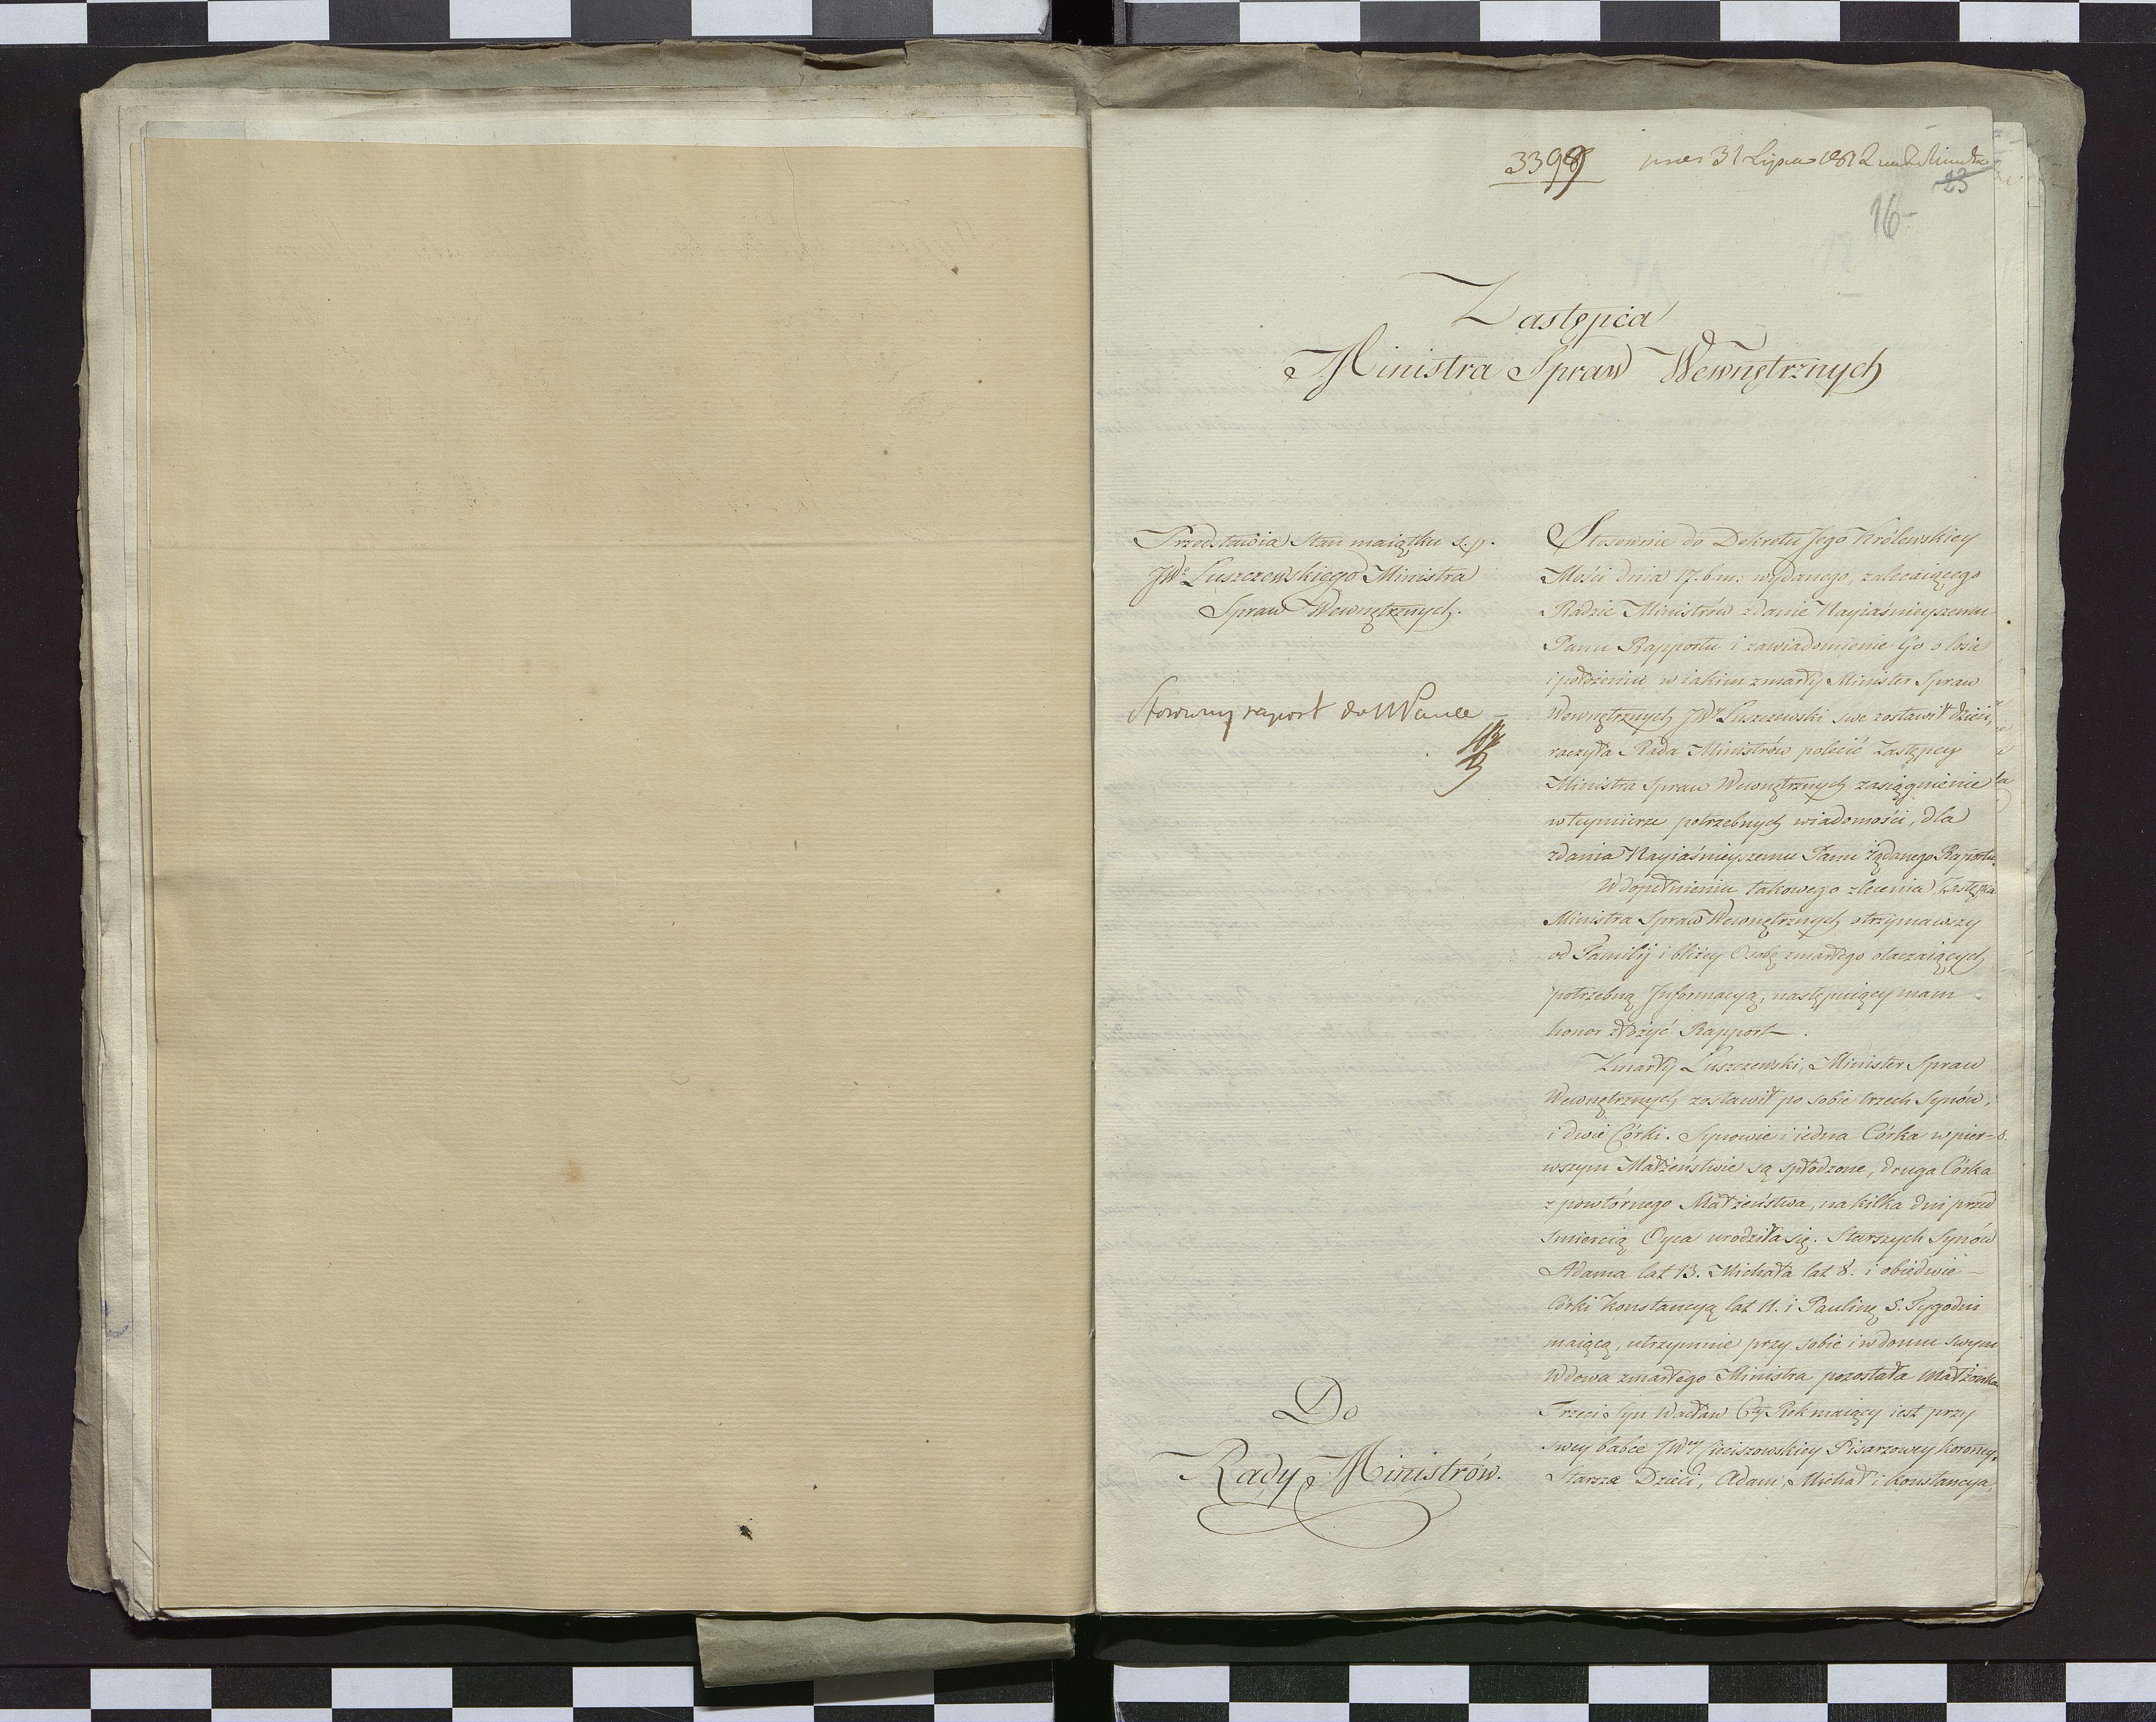 3399 31 Lipca 1812
23
16
Zastępca
Ministra Spraw Wewnętrznych
Przedstawia Stan maiątku s.p.
JWo Łuszczewskiego Ministra
Spraw Wewnętrznych.
Stosowny raport do NPana
Do
Rady Ministrów.
Stosownie do Dekretu Jego Królewskiey
Mości dnia 17. b.m. wydanego, zalecaiącego
Radzie Ministrów zdanie Nayiaśnieyszemu
Panu Rapportu i zawiadomienie Go o losie
i położeniu w iakim zmarły Minister Spraw
Wewnętrznych JWy Łuszczewski swe zostawił dzieci,
raczyła Rada Ministrów polecić Zastępcy
Ministra Spraw Wewnętrznych zasiągnienie
w teymierze potrzebnych wiadomości, dla
zdania Nayiaśnieyszemu Panu żądanego Raportu.
W dopełnieniu takowego zlecenia Zastępca
Ministra Spraw Wewnętrznych otrzymawszy
od Familij i bliżey Osobę zmarłego otaczaiących
potrzebną Informacyą, następuiący mam
honor złożyć Rapport.
Zmarły Łuszczewski, Minister Spraw
Wewnętrznych zostawił po sobie trzech Synów,
i dwie Córki. Synowie i iedna Córka w pier=
wszym Małżeństwie są spłodzone, druga Córka
z powtórnego Małżeństwa, na kilka dni przed
śmiercią Oyca urodziła się. Starszych Synów
Adama lat 13. Michała lat 8. i obiedwie
Córki Konstancyą lat 11. i Paulinę 5. Tygodni
maiącą, utrzymuie przy sobie i w domu swym
Wdowa zmarłego Ministra pozostała Małżonka
Trzeci Syn Wacław 6ty Rok maiący iest przy
swey babce JWey Cieciszowskiey Pisarzowey Koronney.
Starsze Dzieci, Adam, Michał i Konstancya,